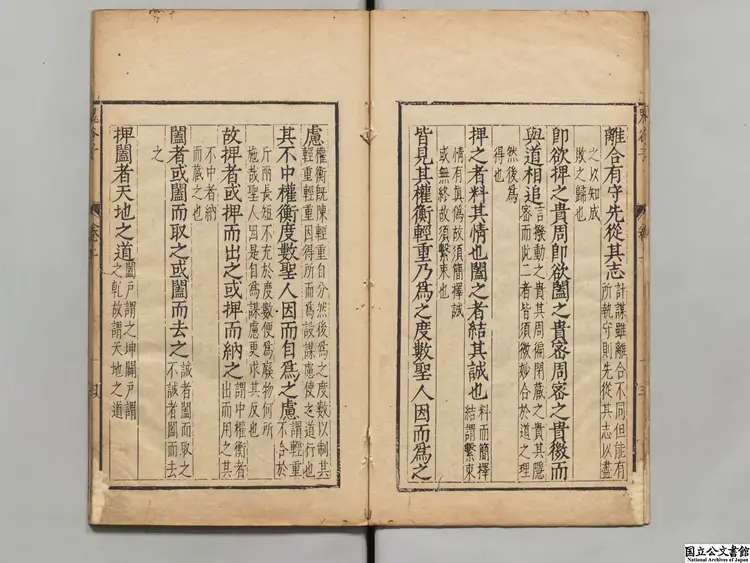 離合有守先從其志
計謀雖離合不同但能有
所執守則先從其志以盡
之以知成
敗之歸也
即欲捭之貴周即欲闔之貴密周密之貴微而
與道相追
言撥動之貴其周徧閉藏之貴其隱
密而此二者皆須微妙合於道之理
然後爲
得也
捭之者料其情也闔之者結其誠也
料而簡擇
結謂繫束
情有真僞故須簡擇誠
或無終故須繫束也
皆見其權衡輕重乃爲之度數聖人因而爲之
慮
權衡既陳輕重自分然後爲之度數以制其
輕重輕重因得所而爲設謀慮使之道行也
其不中權衡度數聖人因而自爲之慮
謂輕重
不合於
斤兩長短不充於度數便爲廢物何所
施哉聖人因是自爲謀慮更求其反也
故捭者或捭而出之或捭而納之
謂中權衡者
出而用之其
不中者納
而藏之也
闔者或闔而取之或闔而去之
誠者闔而取之
不誠者闔而去
之
捭闔者天地之道
闔戶謂之坤闢戶謂
之乾故謂天地之道
鬼谷子
国立公文書館
National Archives of Japan